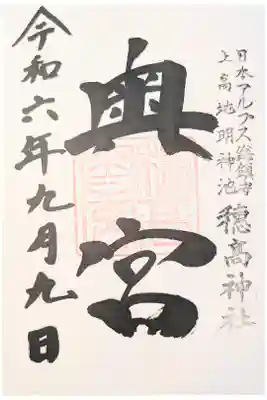 日本アルプス総鎮守
上高地明神池 穂高神社
奥宮
令和六年九月九日